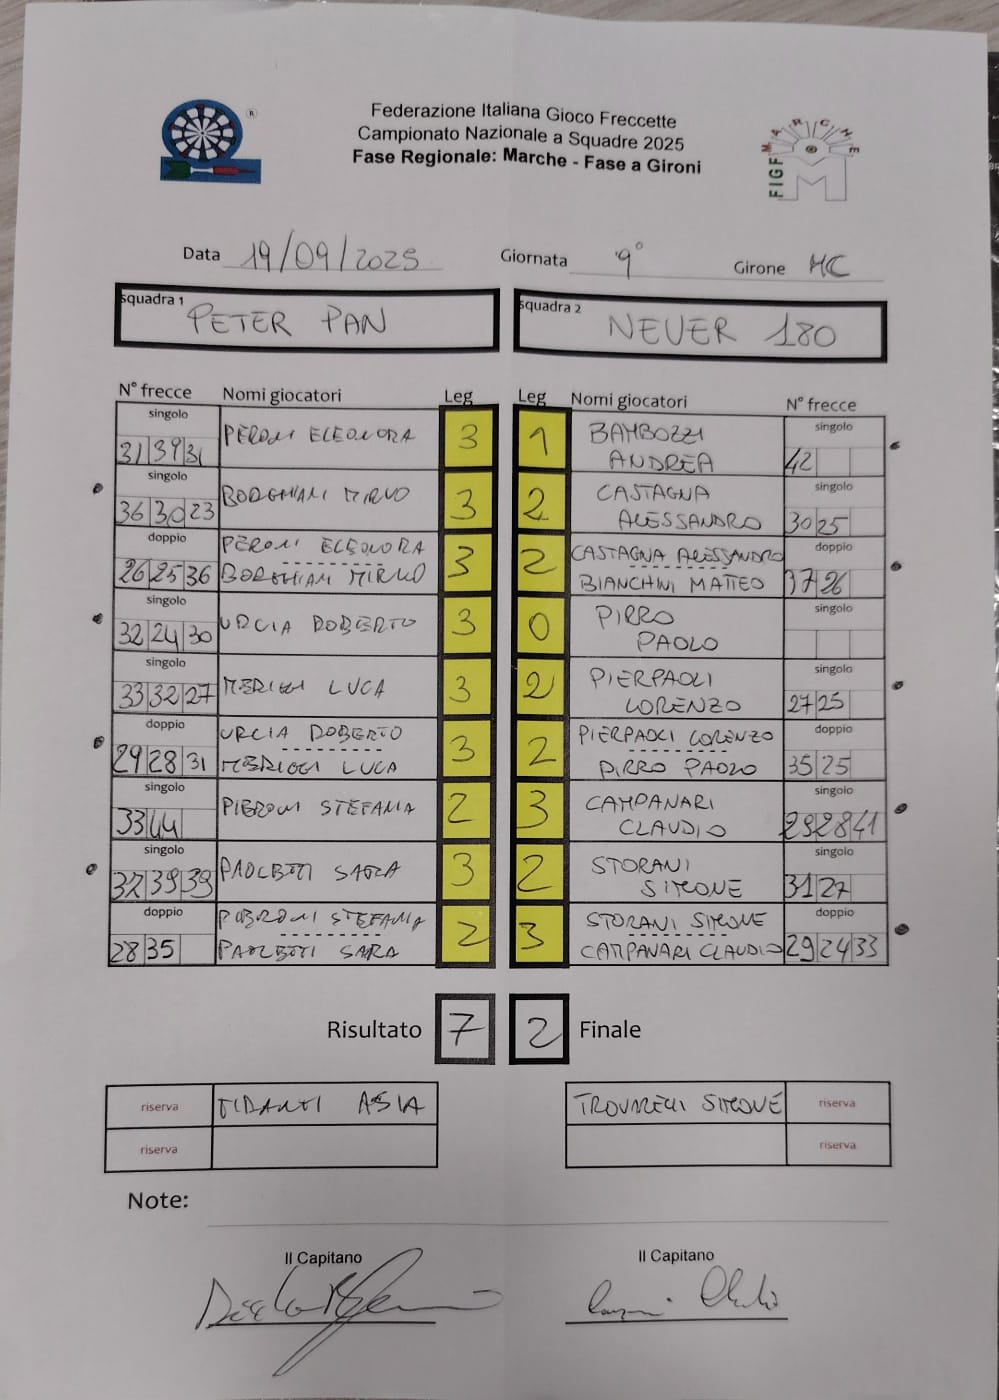 Federazione Italiana Gioco Freccette
Campionato Nazionale a Squadre 2025
Fase Regionale: Marche - Fase a Gironi
FIGF MARCHE
M
Data 19/09/2025 Giornata 9° Girone MC
squadra 1 PETER PAN squadra 2 NEVER 180
N° frecce Nomi giocatori Leg Leg Nomi giocatori N° frecce
singolo 31 39 31 PERONI ELEONORA 3 1 BAMBOZZI ANDREA singolo 42
singolo 36 30 23 BORGHIANI MIRKO 3 2 CASTAGNA ALESSANDRO singolo 30 25
doppio 26 25 36 PERONI ELEONORA 3 2 CASTAGNA ALESSANDRO doppio 37 26
BORGHIANI MIRKO BIANCHINI MATTEO
singolo 32 24 30 URCIA ROBERTO 3 0 PIRRO PAOLO singolo
singolo 33 32 27 MERIGGI LUCA 3 2 PIERPAOLI LORENZO singolo 27 25
doppio 29 28 31 URCIA ROBERTO 3 2 PIERPAOLI LORENZO doppio 35 25
MERIGGI LUCA PIRRO PAOLO
singolo 33 44 PIERONI STEFANIA 2 3 CAMPANARI CLAUDIO singolo 29 28 41
singolo 37 39 39 PAOLETTI SARA 3 2 STORANI SIMONE singolo 31 27
doppio 28 35 PIERONI STEFANIA 2 3 STORANI SIMONE doppio 29 24 33
PAOLETTI SARA CAMPANARI CLAUDIO
Risultato 7 2 Finale
riserva TIRANTI ASIA SIMONE riserva
riserva riserva
Note:
Il Capitano Il Capitano